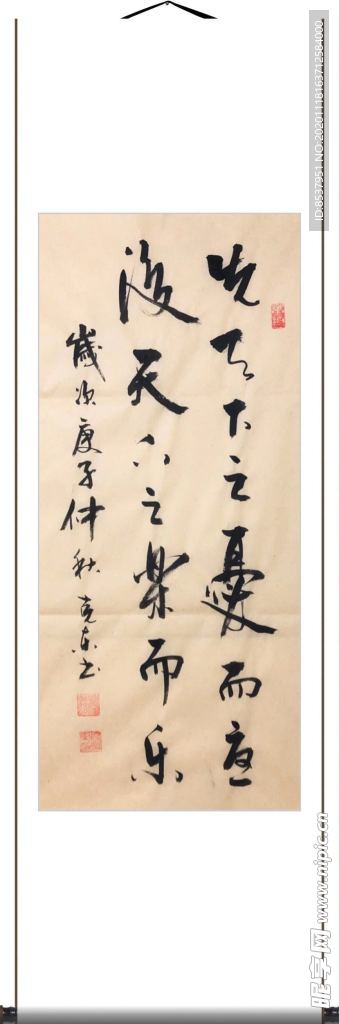 先天下之憂而憂
後天下之樂而乐
歲次庚子仲秋 克东书
ID:8537951 NO:20201118163712584000
昵享网 www.nipic.cn